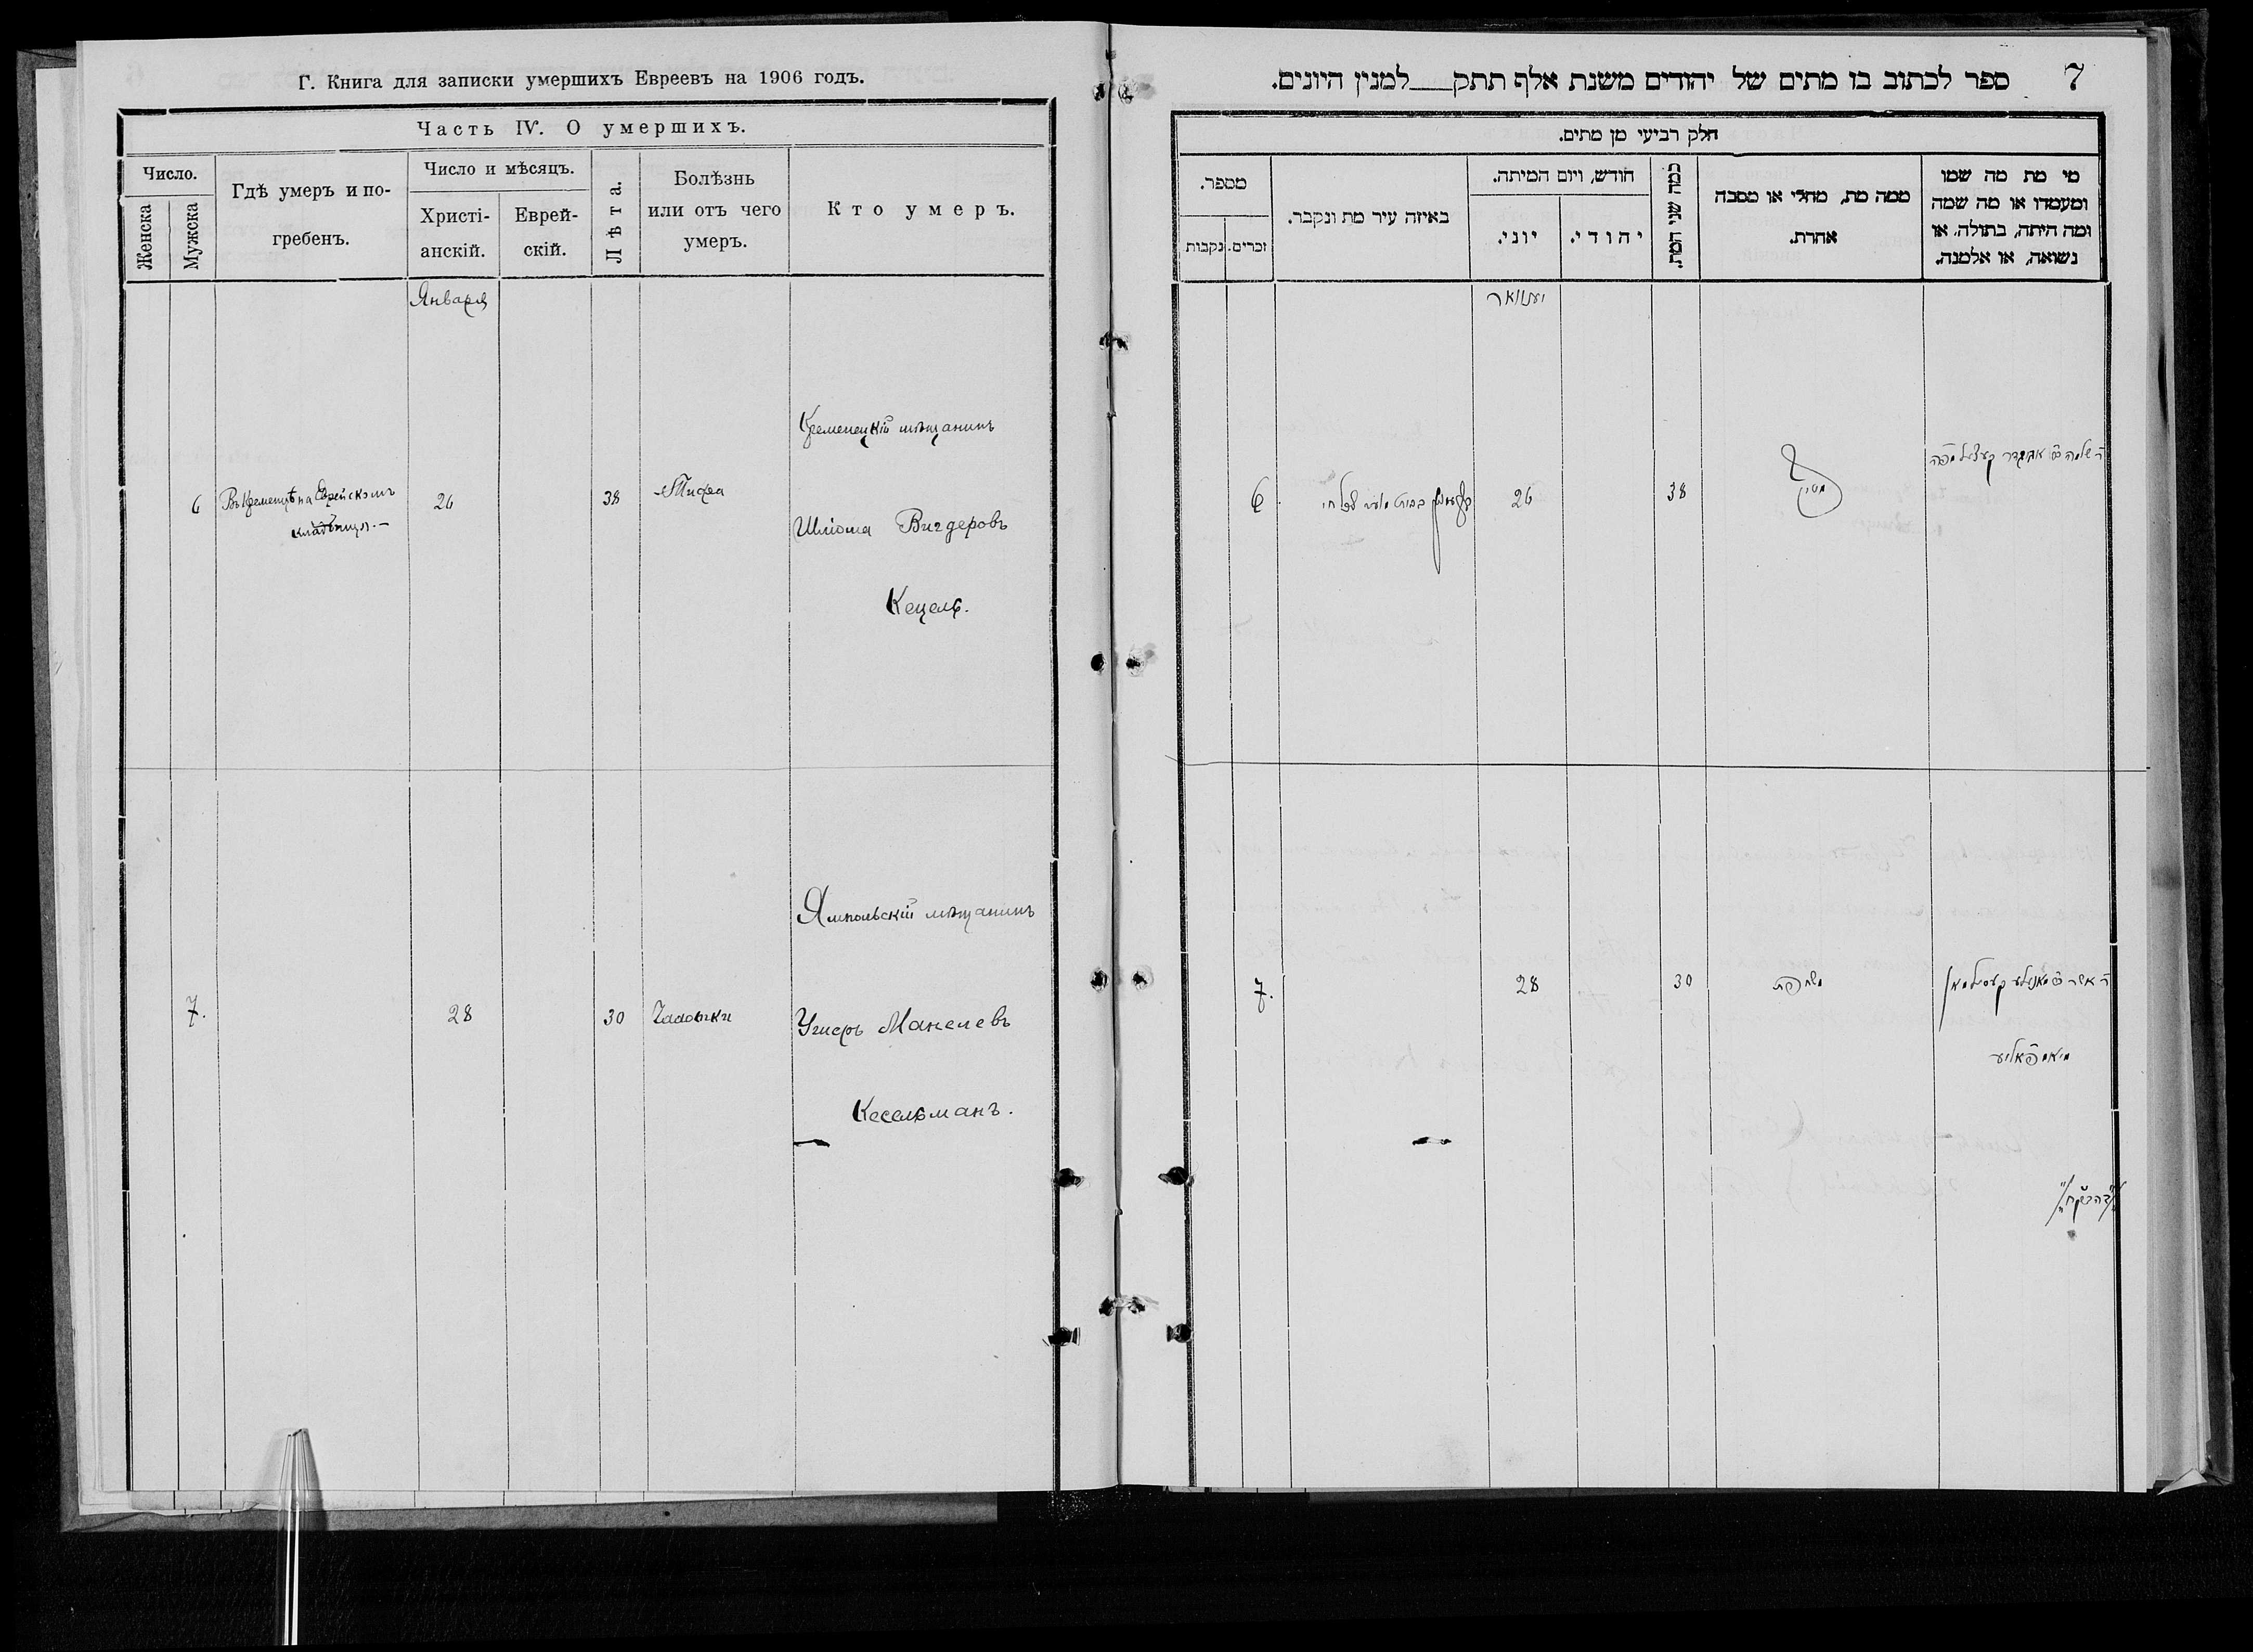 Г. Книга для записки умершихъ Евреевъ на 1906 годъ.
Часть IV. О умершихъ.
Число.
Женска
Мужска
Гдѣ умеръ и по-
гребенъ.
Число и мѣсяцъ.
Христі-
анскій.
Еврей-
скій.
Лѣта.
Болѣзнь
или отъ чего
умеръ.
Кто умеръ.
Января
6
Въ Кременцѣ на Еврейскомъ
кладбищѣ.—
26
38
Тифа
Кременецкій мѣщанинъ
Шлiома Вигдеровъ
Кецель.
7.
28
30
Чахотки
Ямпольскій мѣщанинъ
Ушеръ Манелевъ
Кесельманъ.
7
ספר לכתוב בו מתים של יהודים משנת אלף תתק למנין היונים.
חלק רביעי מן מתים.
מספר.
נקבות
זכרים.
באיזה עיר מת ונקבר.
חודש, ויום המיתה.
יוני.
יהודי.
כמה שני המת.
ממה מת, מחלי או מסבה
אחרת.
מי מת מה שמו
ומעמדו או מה שמה
ומה היתה, בתולה, או
נשואה, או אלמנה.
יענוואר
6
26
38
7.
28
30
שחפת
ר' אשר
קעסילמאן